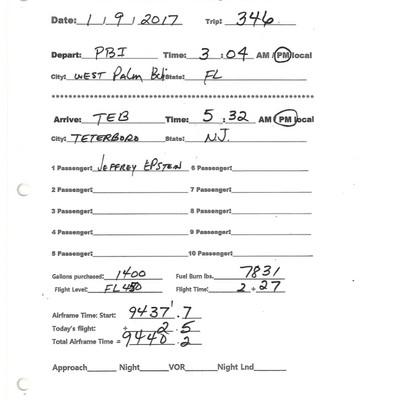 Date: 1 / 9 / 2017 Trip: 346
Depart: PBI Time: 3 : 04 AM / PM local
City: WEST PALM BCH State: FL
****************************************
Arrive: TEB Time: 5 : 32 AM PM local
City: TETERBORO State: N.J.
1 Passenger: JEFFREY EPSTEIN 6 Passenger:
2 Passenger: 7 Passenger:
3 Passenger: 8 Passenger:
4 Passenger: 9 Passenger:
5 Passenger: 10 Passenger:
Gallons purchased: 1400 Fuel Burn lbs. 7831
Flight Level: FL450 Flight Time: 2 + 27
Airframe Time: Start: 9437.7
Today's flight: + 2.5
Total Airframe Time = 9440.2
Approach Night VOR Night Lnd